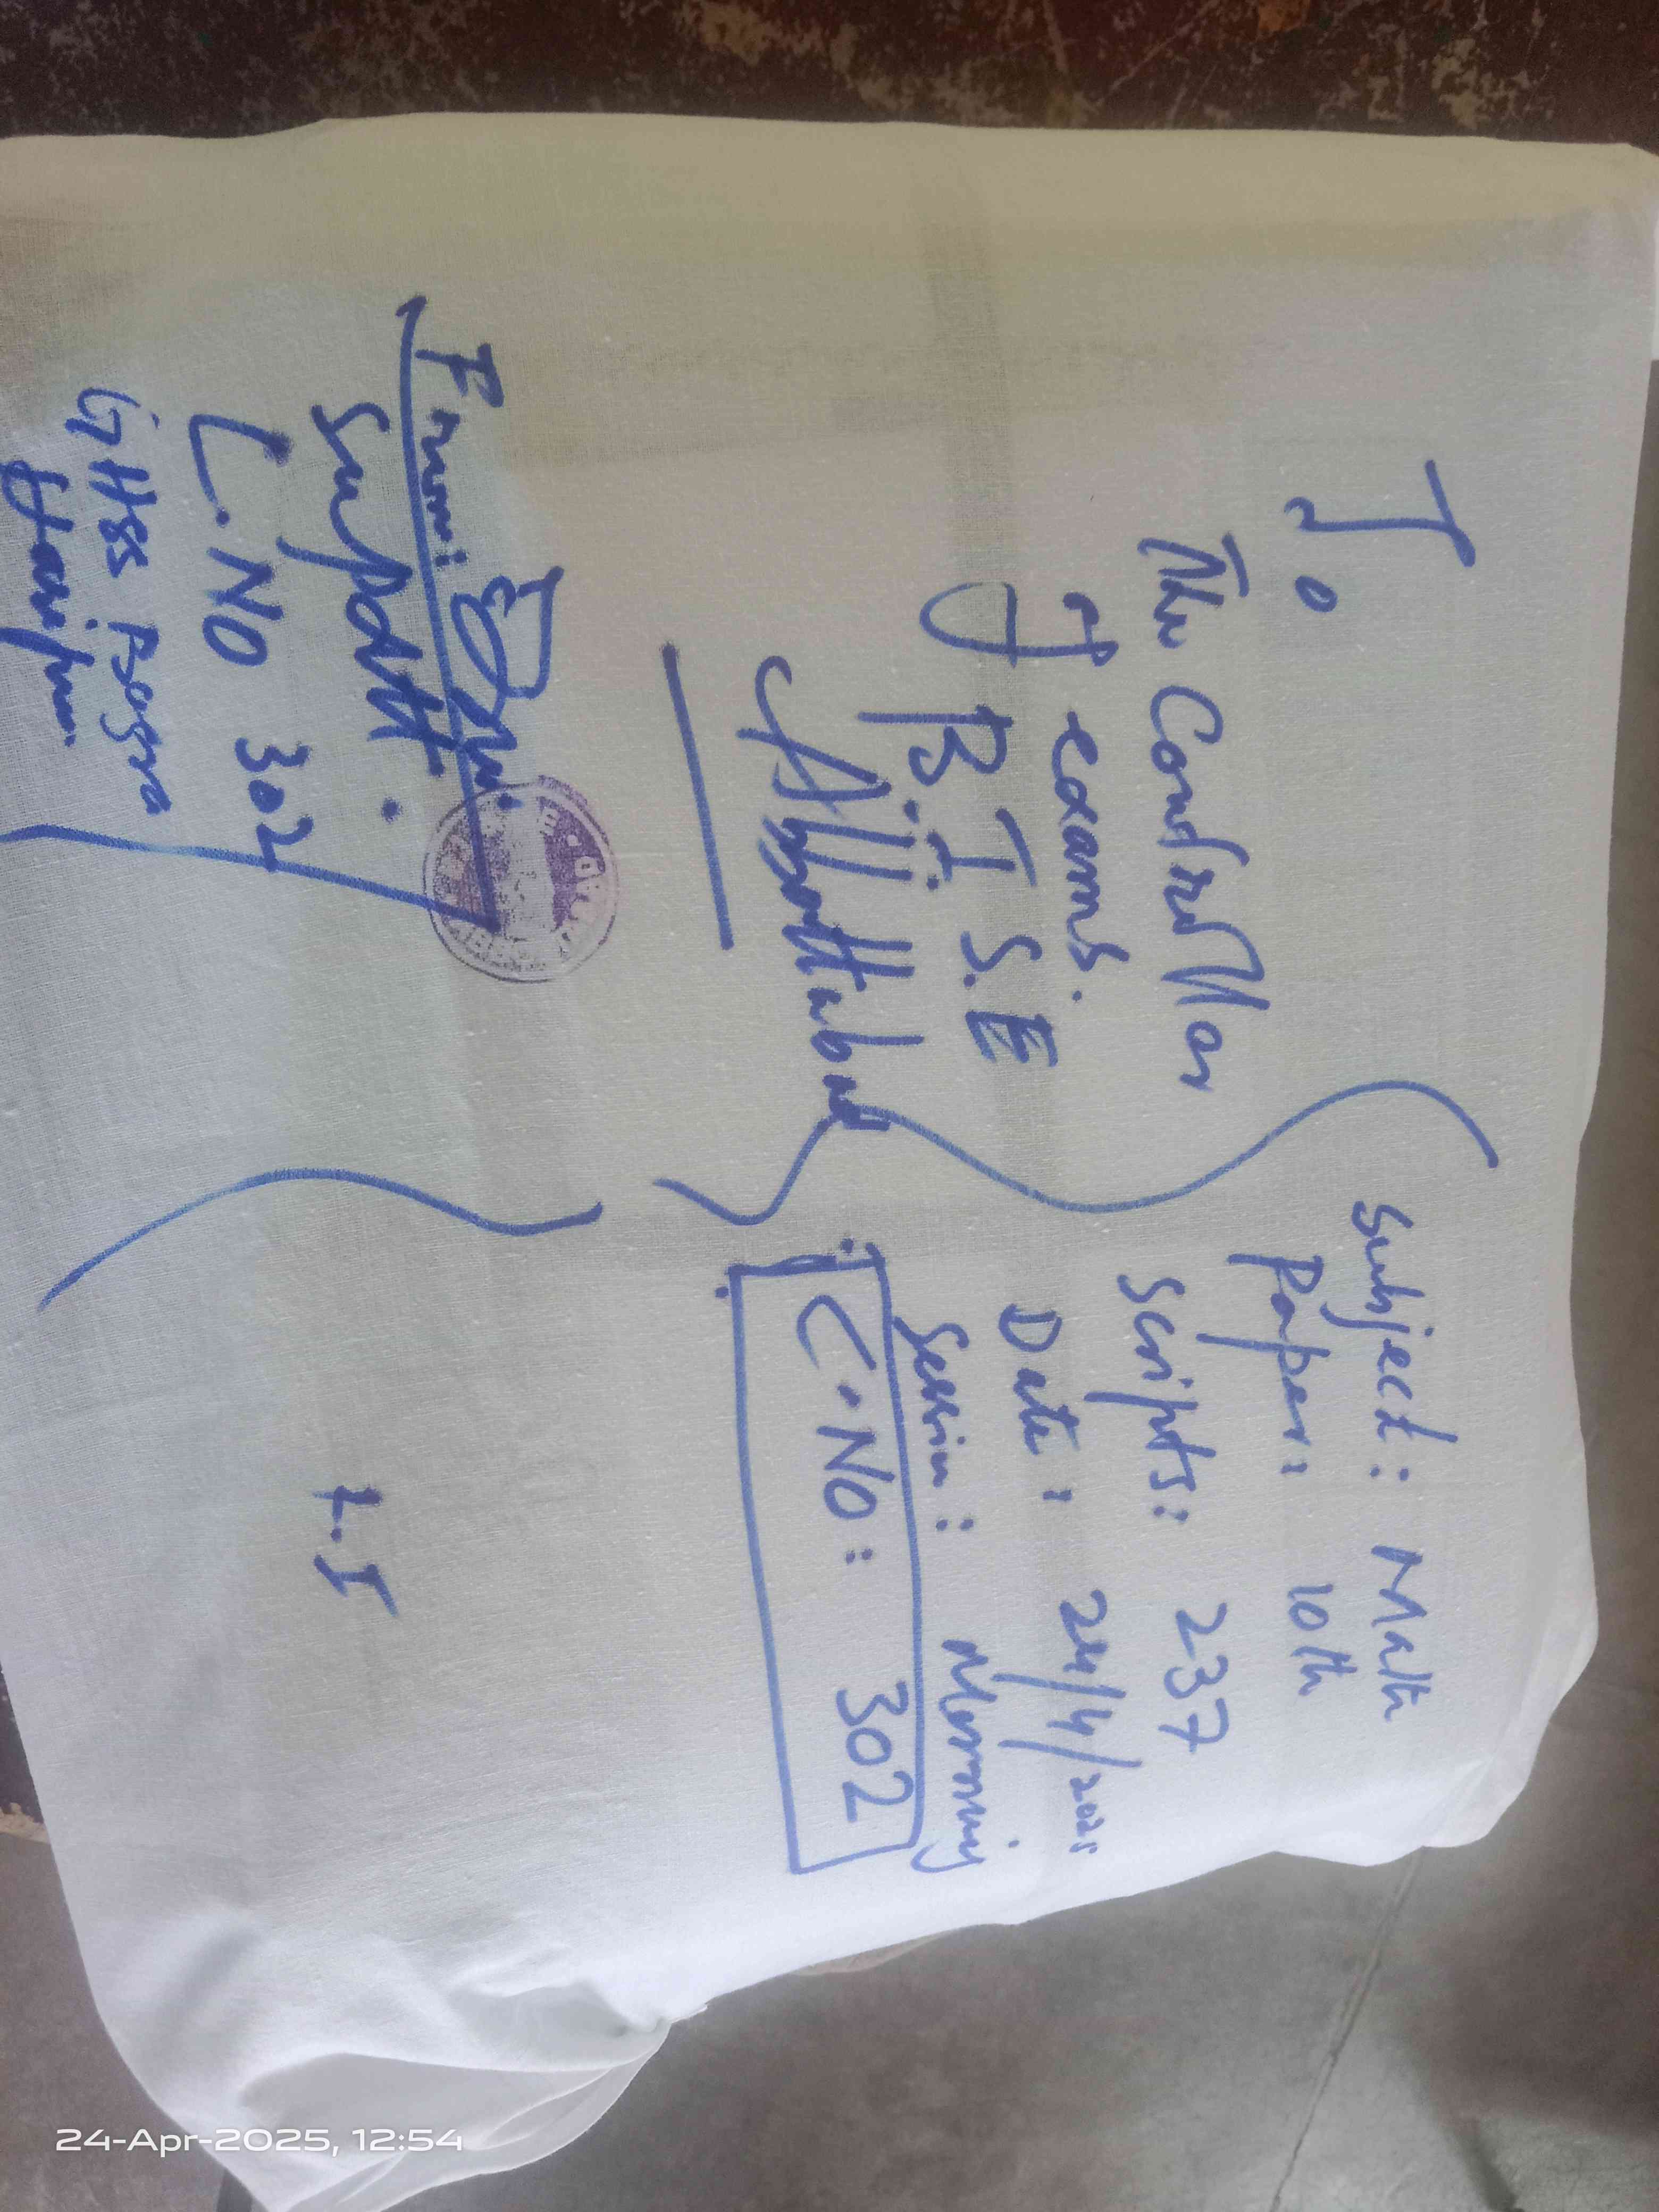 To
The Controllar
of exams.
B.I S.E
Abbottabad
Subject: Math
Paper: 10th
Scripts: 237
Date: 24/4/2025
Session: Morning
C.NO: 302
From:
Supdtt.
C.NO 302
GHSS
Haripur
24-Apr-2025, 12:54